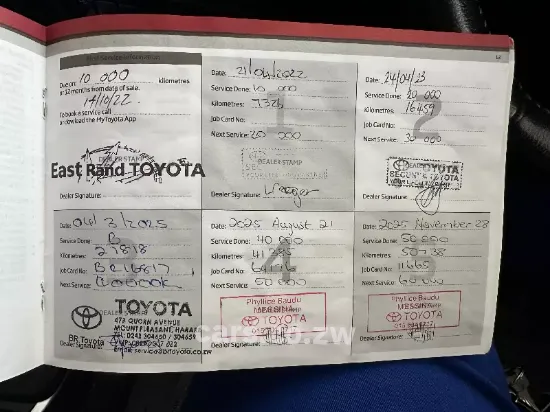 Due on: 10 000 kilometres
or 12 months from date of sale.
14/10/22
To book a service call
or download the MyToyota App
DEALER STAMP
East Rand TOYOTA
Dealer Signature:
Date: 21/04/2022
Service Done: 10 000
Kilometres: 7326
Job Card No:
Next Service: 20 000
DEALER STAMP
Dealer Signature:
1
Date: 24/04/23
Service Done: 20 000
Kilometres: 16459
Job Card No:
Next Service: 30 000
DEALER STAMP
TOYOTA
Dealer Signature:
2
Date: 04/3/2025
Service Done: B
Kilometres: 27818
Job Card No: BR16817
Next Service:
TOYOTA
473 QUORN AVENUE
MOUNT PLEASANT, HARARE
BR Toyota
Dealer Signature:
Date: 2025 August 21
Service Done: 40 000
Kilometres:
Job Card No:
Next Service: 50 000
Phyllice Baudu
MESSINA
TOYOTA
Dealer Signature:
4
Date: 2025 November 28
Service Done: 50 000
Kilometres: 50738
Job Card No: 11665
Next Service: 60 000
Phyllice Baudu
MESSINA
TOYOTA
Dealer Signature: